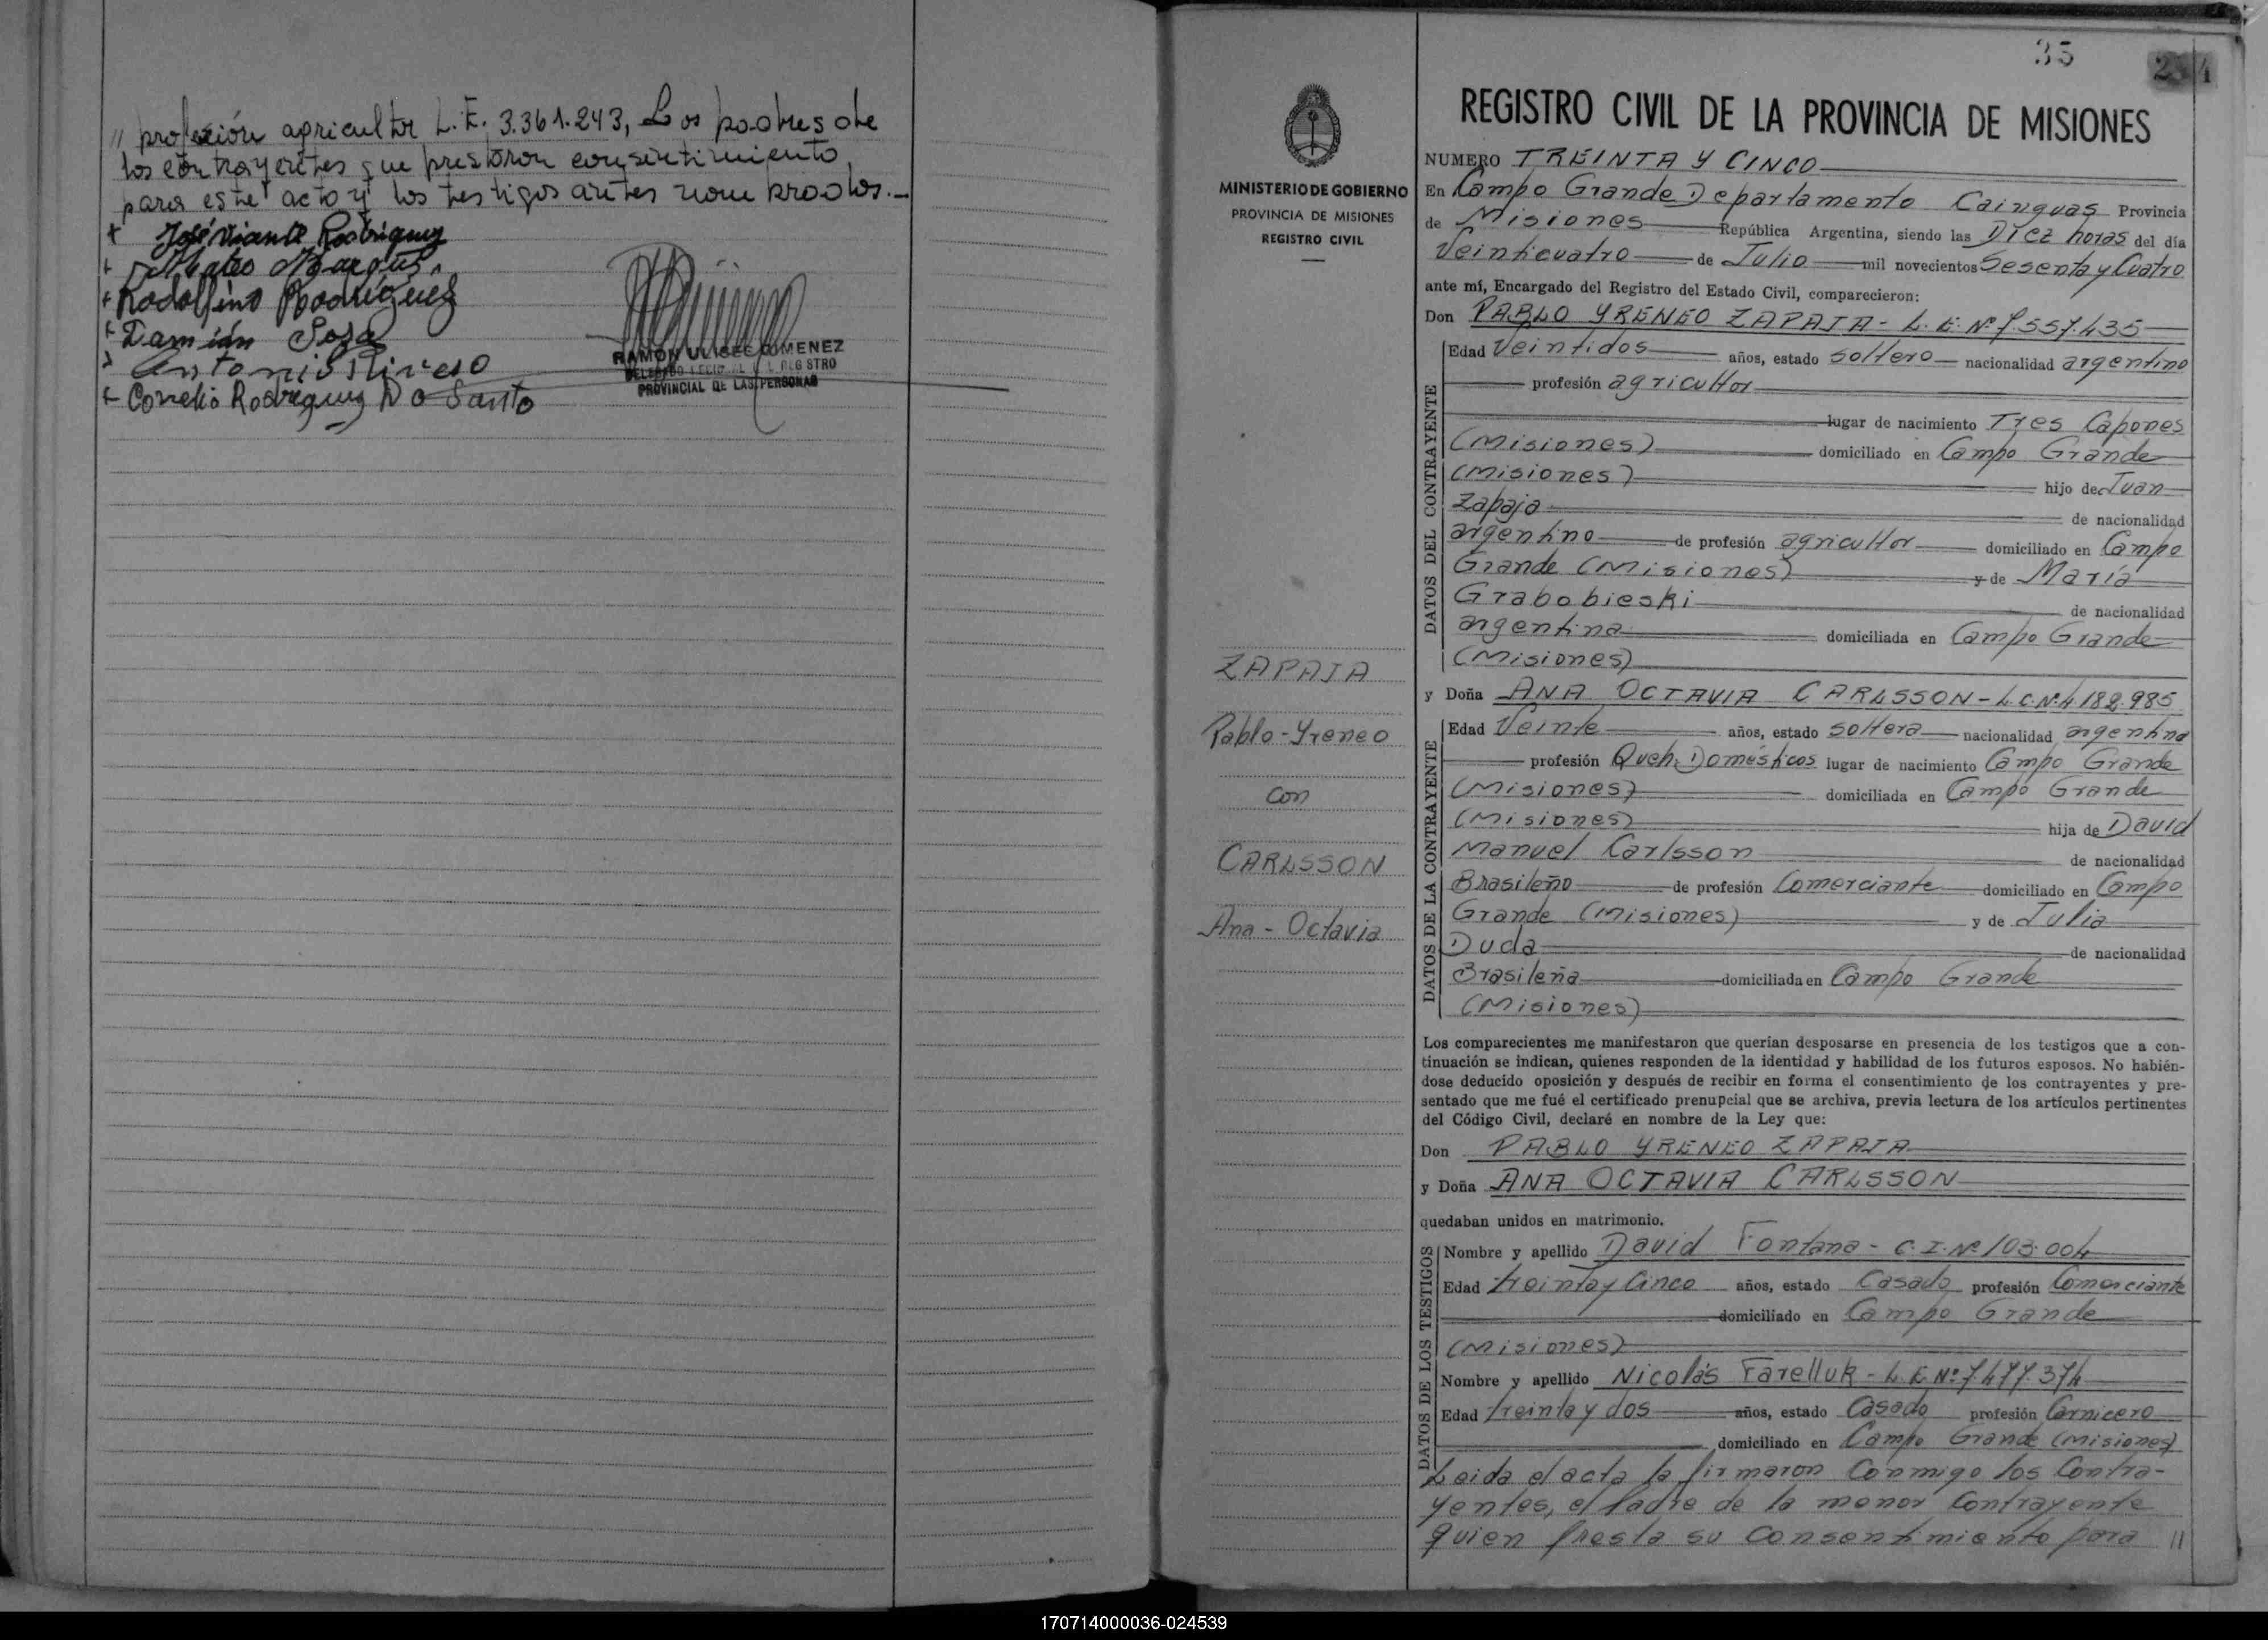 // profesión agricultor L.E. 3.361.243, Los padres de
los contrayentes que prestaron consentimiento
para este acto y los testigos antes nombrados.-
José Viante Rodriguez
Mateo Marques
Rodolfino Rodriguez
Damián Sosa
Antonio Rivero
Cornelio Rodriguez Do Santo
RAMON ULISES GIMENEZ
PROVINCIAL DE LAS PERSONAS
35
MINISTERIO DE GOBIERNO
PROVINCIA DE MISIONES
REGISTRO CIVIL
ZAPAJA
Pablo-Yreneo
con
CARLSSON
Ana-Octavia
REGISTRO CIVIL DE LA PROVINCIA DE MISIONES
NUMERO TREINTA Y CINCO
En Campo Grande Departamento Cainguas Provincia
de Misiones República Argentina, siendo las Diez horas del día
Veinticuatro de Julio mil novecientos Sesenta y Cuatro
ante mí, Encargado del Registro del Estado Civil, comparecieron:
Don PABLO YRENEO ZAPAJA - L.E. Nº 7.557.435
DATOS DEL CONTRAYENTE
Edad Veintidos años, estado soltero nacionalidad argentino
profesión agricultor
lugar de nacimiento Tres Capones
(Misiones) domiciliado en Campo Grande
(Misiones) hijo de Juan
Zapaja de nacionalidad
argentino de profesión agricultor domiciliado en Campo
Grande (Misiones) y de María
Grabobieski de nacionalidad
argentina domiciliada en Campo Grande
(Misiones)
y Doña ANA OCTAVIA CARLSSON - L.C.Nº 4.182.985
DATOS DE LA CONTRAYENTE
Edad Veinte años, estado soltera nacionalidad argentina
profesión Queh. Domésticos lugar de nacimiento Campo Grande
(Misiones) domiciliada en Campo Grande
(Misiones) hija de David
Manuel Carlsson de nacionalidad
Brasileño de profesión Comerciante domiciliado en Campo
Grande (Misiones) y de Julia
Duda de nacionalidad
Brasileña domiciliada en Campo Grande
(Misiones)
Los comparecientes me manifestaron que querían desposarse en presencia de los testigos que a con-
tinuación se indican, quienes responden de la identidad y habilidad de los futuros esposos. No habién-
dose deducido oposición y después de recibir en forma el consentimiento de los contrayentes y pre-
sentado que me fué el certificado prenupcial que se archiva, previa lectura de los artículos pertinentes
del Código Civil, declaré en nombre de la Ley que:
Don PABLO YRENEO ZAPAJA
y Doña ANA OCTAVIA CARLSSON
quedaban unidos en matrimonio.
DATOS DE LOS TESTIGOS
Nombre y apellido David Fontana - C.I. Nº 103.004
Edad treinta y Cinco años, estado Casado profesión Comerciante
domiciliado en Campo Grande
(Misiones)
Nombre y apellido Nicolás Farelluk - L.E Nº 7.477.374
Edad treinta y dos años, estado Casado profesión Carnicero
domiciliado en Campo Grande (Misiones)
Leida el acta la firmaron Conmigo los Contra-
yentes, el Padre de la menor Contrayente
quien presta su consentimiento para //
170714000036-024539